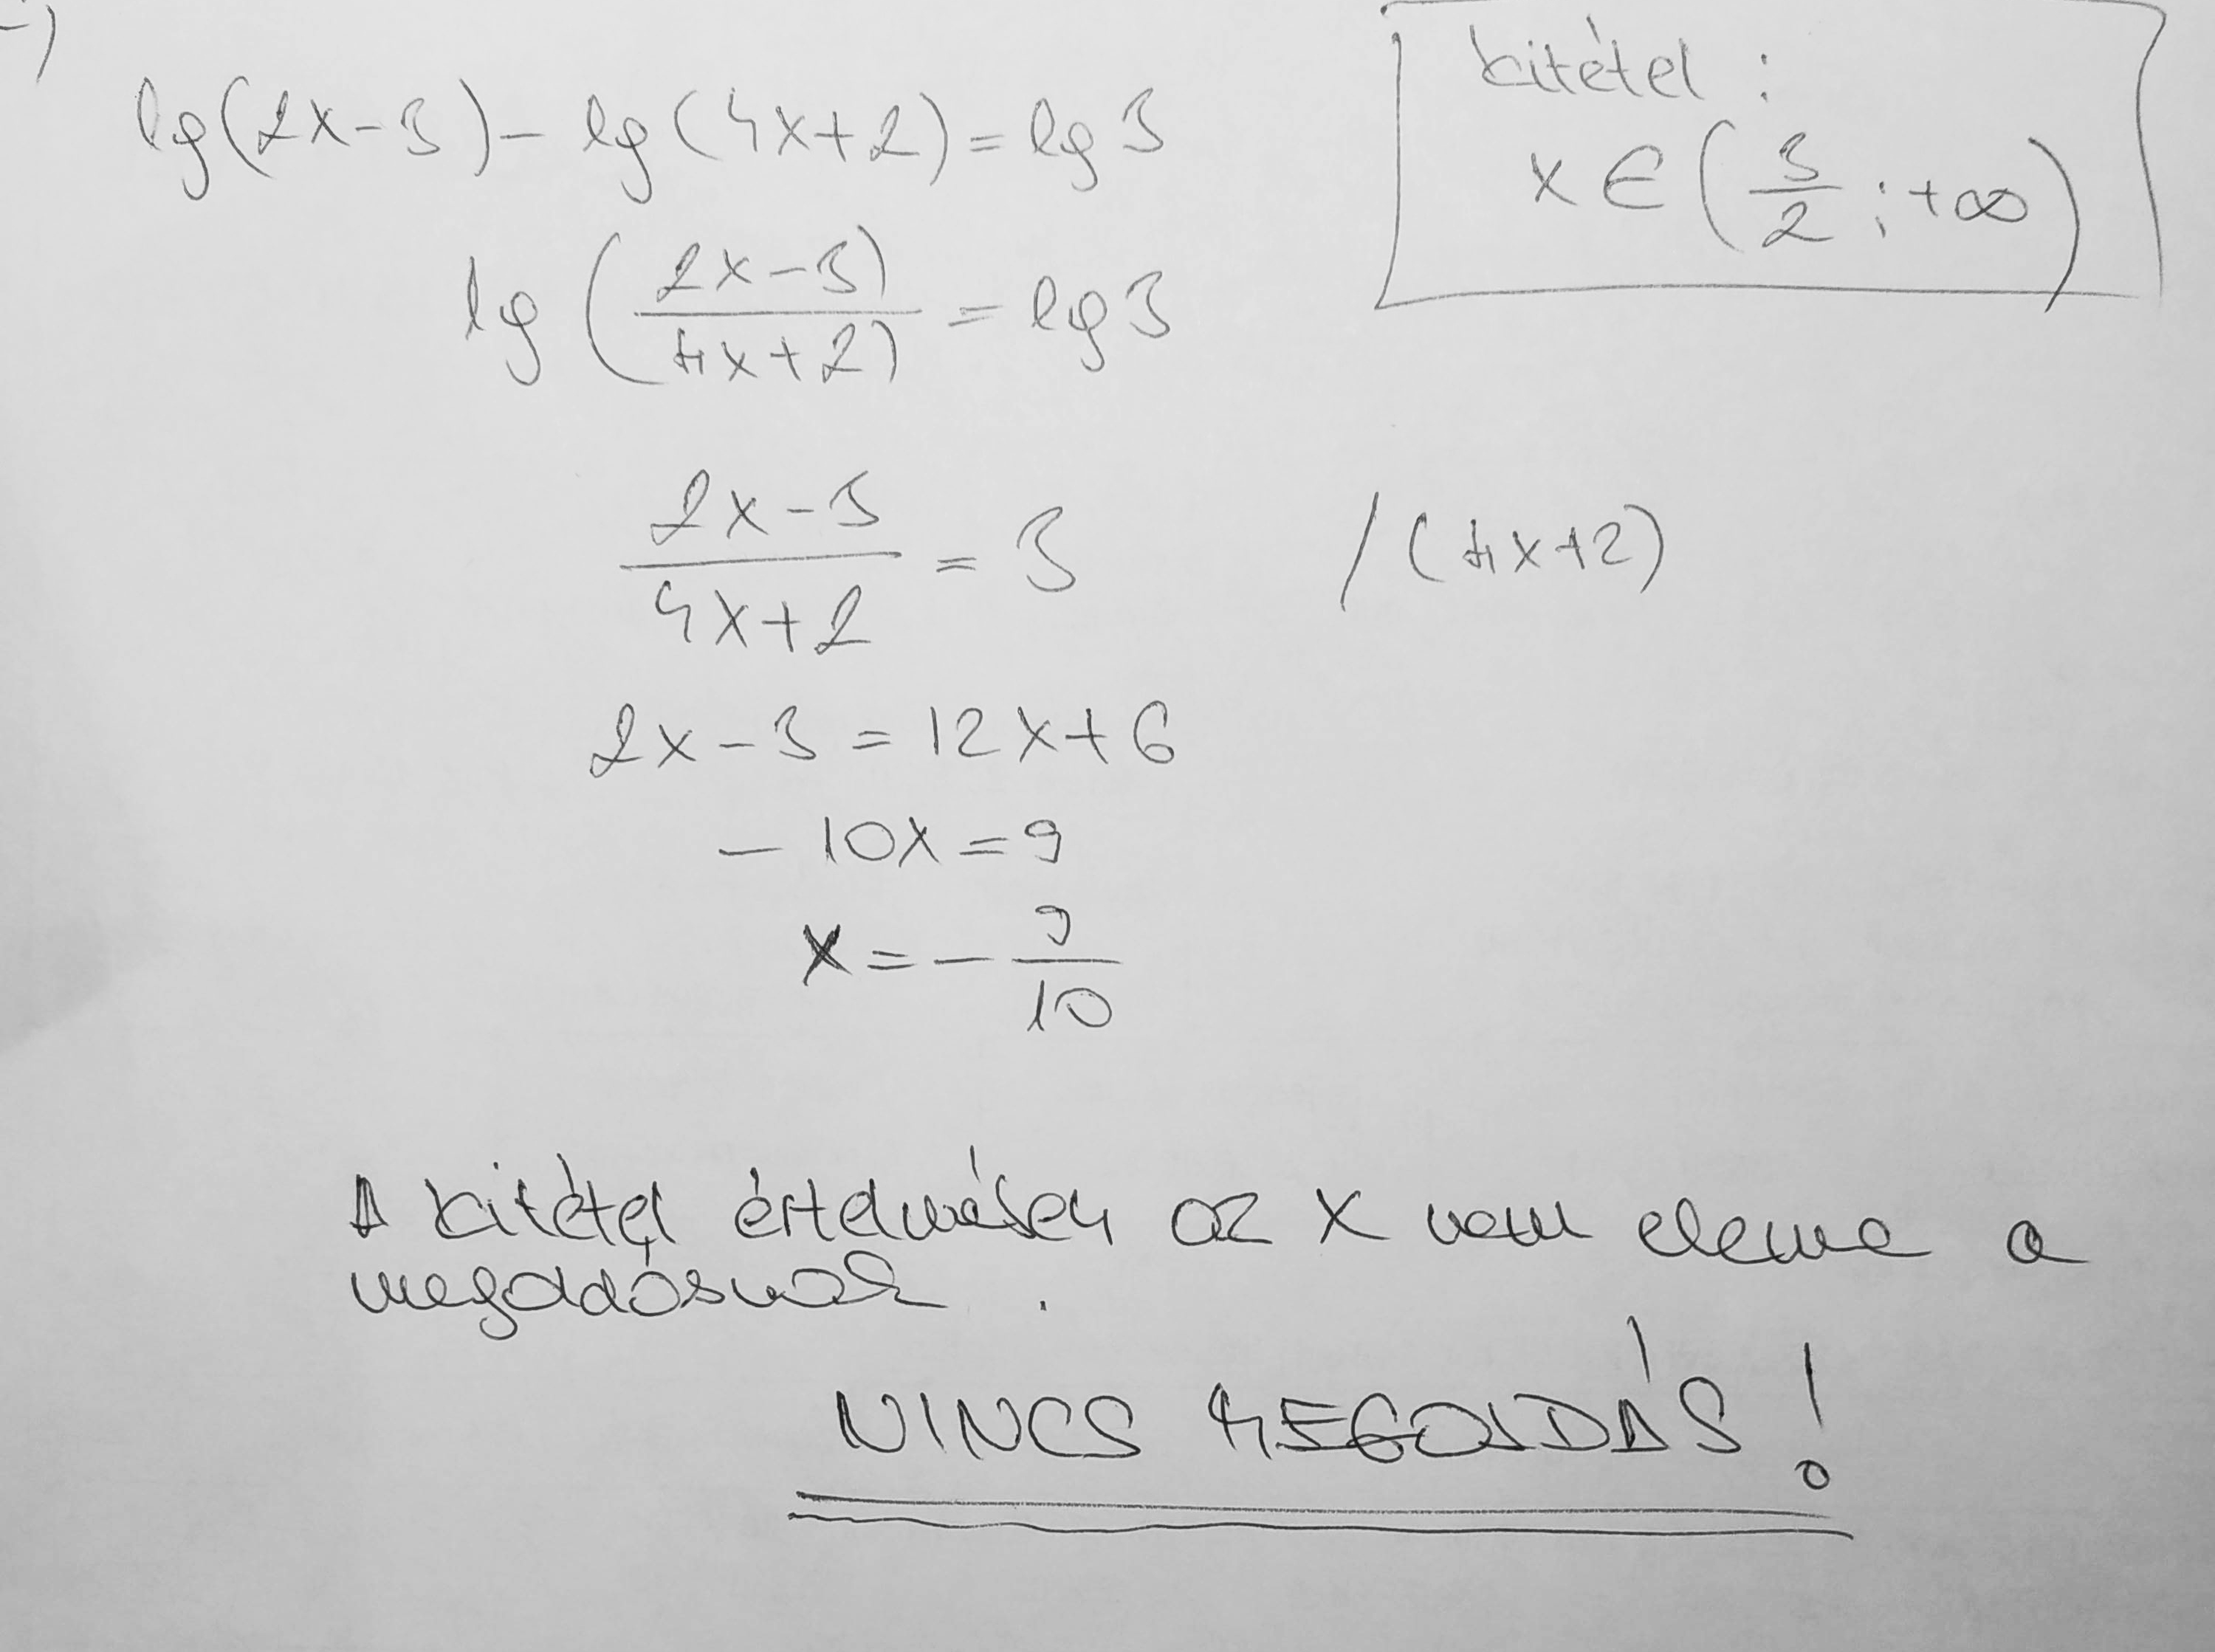 lg(2x-3)-lg(4x+2)=lg3
kitétel:
x∈(3/2;+∞)
lg((2x-3)/(4x+2))=lg3
(2x-3)/(4x+2)=3 /(4x+2)
2x-3=12x+6
-10x=9
x=-9/10
A kitétel értelmében az x nem eleme a
megadásnak.
NINCS MEGOLDÁS!